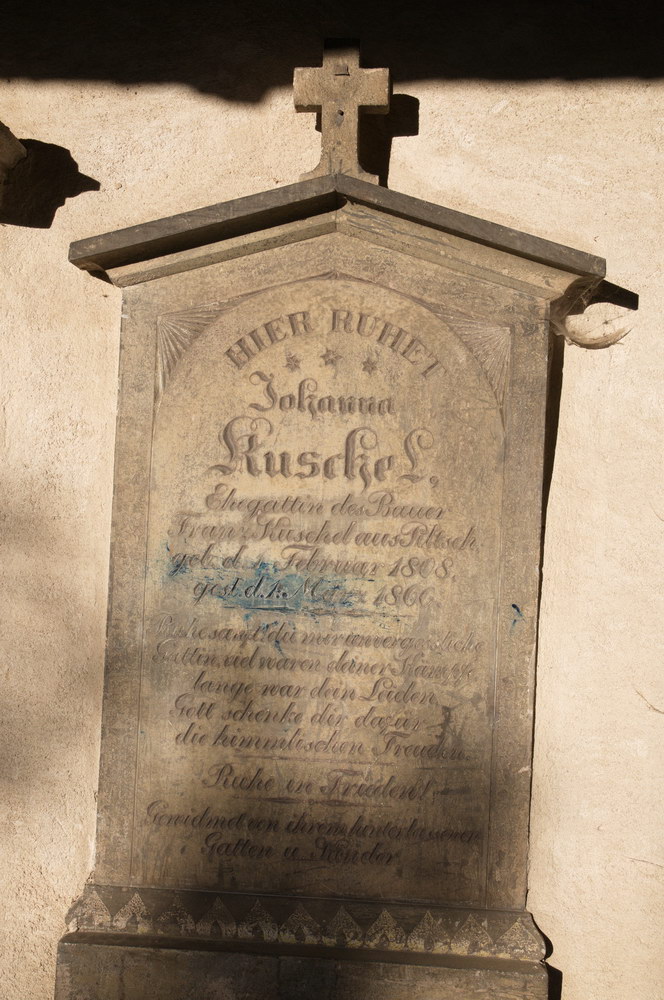 HIER RUHET
Johanna
Kuschel,
Ehegattin des Bauer
Franz Kuschel aus Piltsch,
geb. d. Februar 1808,
gest. d. 1. März 1866.
Ruhe sanft du mir unvergessliche
Gattin, viel waren deiner Kämpfe
lange war dein Leiden,
Gott schenke dir dafür
die himmlischen Freuden.
Ruhe in Frieden!
Gewidmet von ihrem hinterlassenen
Gatten u. Kinder.